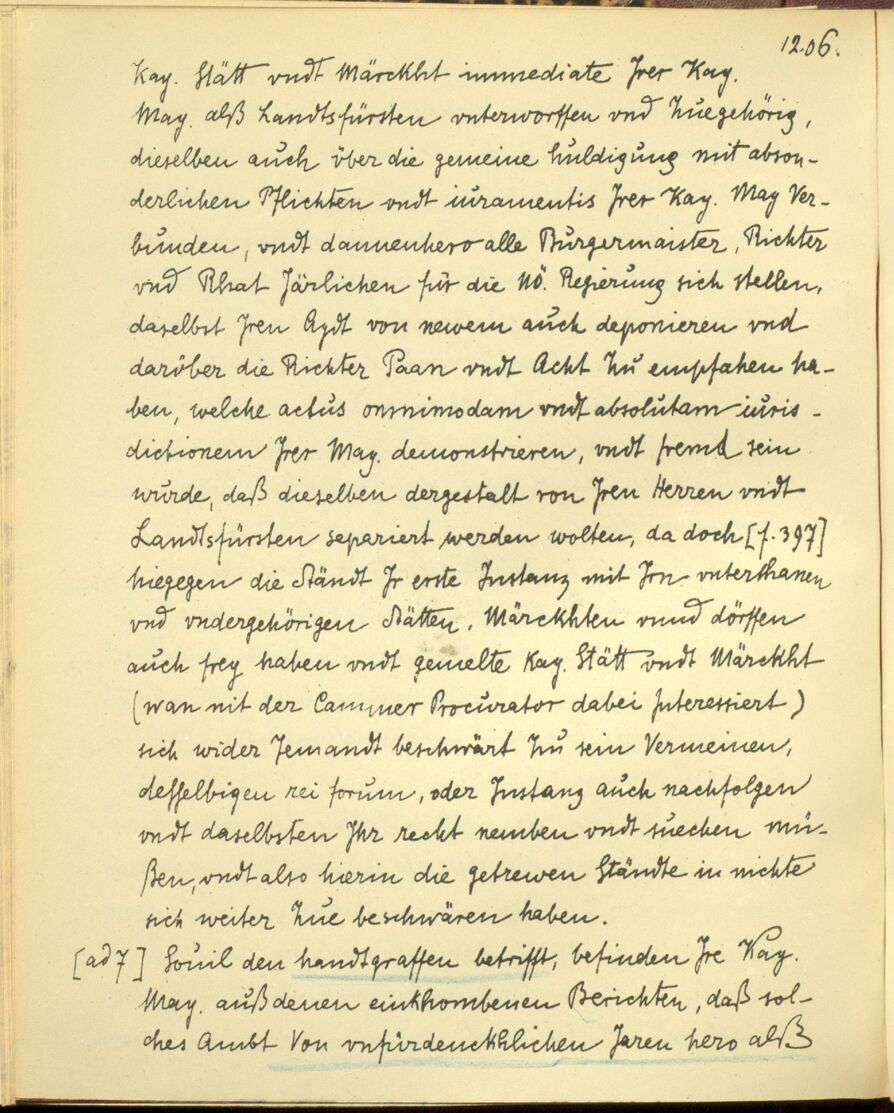 1206.
Kay. Stätt vndt Märckht immediate Jrer Kay.
May. alß Landtsfürsten vnterworffen vnd Zuegehörig,
dieselben auch über die gemeine huldigung mit abson-
derlichen Pflichten vndt iuramentis Jrer Kay. May Ver-
bunden, vndt dannenhero alle Burgermaister, Richter
vnd Rhat Järlichen für die NÖ. Regierung sich stellen,
daselbst Jren Aydt von newem auch deponieren vnd
darüber die Richter Paan vndt Acht Zu empfahen ha-
ben, welche actus omnimodam vndt absolutam iuris-
dictionem Jrer May. demonstrieren, vndt fremd sein
wurde, daß dieselben dergestalt von Jren Herren vndt
Landtsfürsten separiert werden wolten, da doch [f. 397]
hiegegen die Ständt Jr erste Instanz mit Jrn vnterthanen
vnd vndergehörigen Stätten, Märckhten vnnd dörffen
auch frey haben vndt gemelte Kay. Stätt vndt Märckht
(wan nit der Cammer Procurator dabei Interessiert)
sich wider Jemandt beschwärt Zu sein Vermeinen,
desselbigen rei forum, oder Instanz auch nachfolgen
vndt daselbsten Jhr recht nemben vndt suechen mü-
ßen, vndt also hierin die getrewen Ständte in nichte
sich weiter Zue beschwären haben.
[ad 7] Souil den handtgraffen betrifft, befinden Jre Kay.
May. auß denen einkhombenen Berichten, daß sol-
ches Ambt Von vnfürdenckhlichen Jaren hero alß